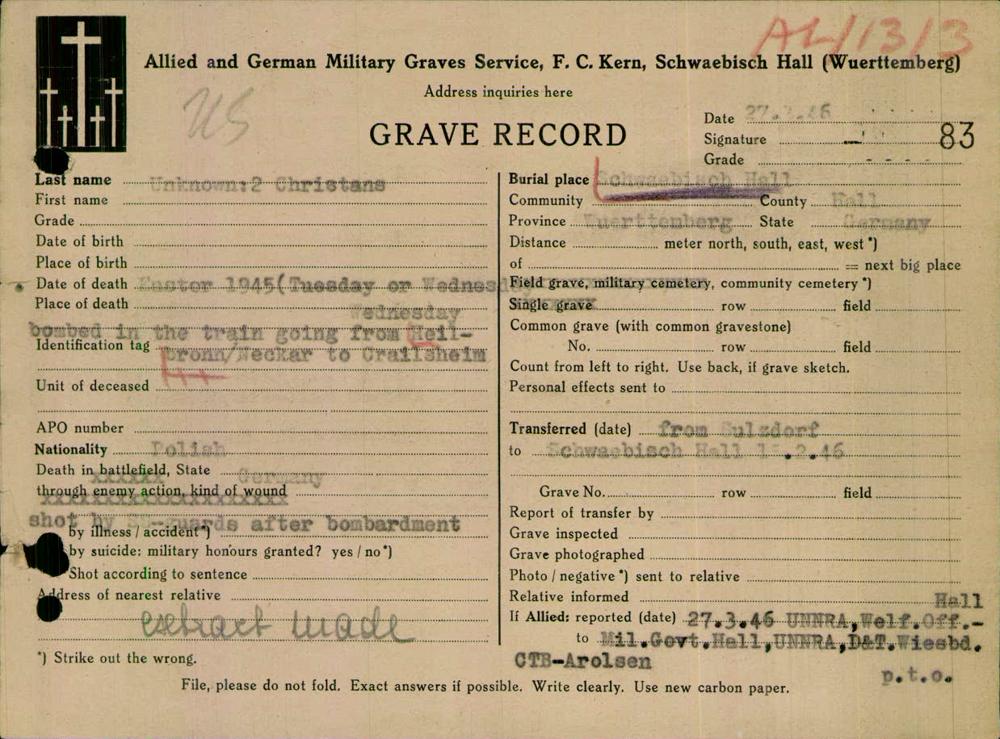 AL/13/3
Allied and German Military Graves Service, F. C. Kern, Schwaebisch Hall (Wuerttemberg)
Address inquiries here
US
GRAVE RECORD
Date 27. .46
Signature
83
Grade
Last name Unknown:2 Christans
First name
Grade
Date of birth
Place of birth
Date of death Easter 1945(Tuesday or Wednesday
Place of death Wednesday
bombed in the train going from Heil-
Identification tag bronn/Neckar to Crailsheim
Unit of deceased
APO number
Nationality Polish
Death in battlefield, State Germany
through enemy action, kind of wound
shot by SS-guards after bombardment
by illness / accident*)
by suicide: military honours granted? yes / no*)
Shot according to sentence
Address of nearest relative
extract made
*) Strike out the wrong.
Burial place Schwaebisch Hall
Community County Hall
Province Wuerttemberg State Germany
Distance meter north, south, east, west *)
of = next big place
Field grave, military cemetery, community cemetery *)
Single grave row field
Common grave (with common gravestone)
No. row field
Count from left to right. Use back, if grave sketch.
Personal effects sent to
Transferred (date) from Sulzdorf
to Schwaebisch Hall .2.46
Grave No. row field
Report of transfer by
Grave inspected
Grave photographed
Photo / negative *) sent to relative
Relative informed Hall
If Allied: reported (date) 27.3.46 UNNRA,Welf.Off.-
to Mil.Govt.Hall,UNNRA,D&T.Wiesbd.
CTB-Arolsen
p.t.o.
File, please do not fold. Exact answers if possible. Write clearly. Use new carbon paper.